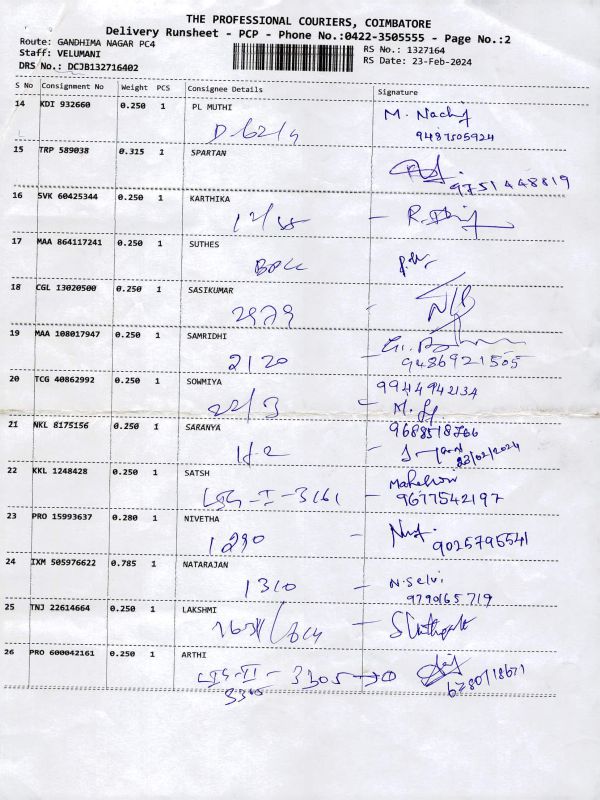 THE PROFESSIONAL COURIERS, COIMBATORE
Delivery Runsheet - PCP - Phone No.:0422-3505555 - Page No.:2
Route: GANDHIMA NAGAR PC4
RS No.: 1327164
Staff: VELUMANI
RS Date: 23-Feb-2024
DRS No.: DCJB132716402
S No Consignment No Weight PCS Consignee Details Signature
14 KDI 932660 0.250 1 PL MUTHI
D-62/4
9487505924
15 TRP 589038 0.315 1 SPARTAN
9751448819
16 SVK 60425344 0.250 1 KARTHIKA
12/55
17 MAA 864117241 0.250 1 SUTHES
18 CGL 13020500 0.250 1 SASIKUMAR
2979
19 MAA 108017947 0.250 1 SAMRIDHI
2120
9486921505
20 TCG 40862992 0.250 1 SOWMIYA
9944942134
22/3
21 NKL 8175156 0.250 1 SARANYA
9688518766
23/02/2024
22 KKL 1248428 0.250 1 SATSH
LIG-II-3161
9677542197
23 PRO 15993637 0.280 1 NIVETHA
1290
9025795541
24 IXM 505976622 0.785 1 NATARAJAN
1310
N. Selvi
9790165719
25 TNJ 22614664 0.250 1 LAKSHMI
26 PRO 600042161 0.250 1 ARTHI
LIG-II-3305